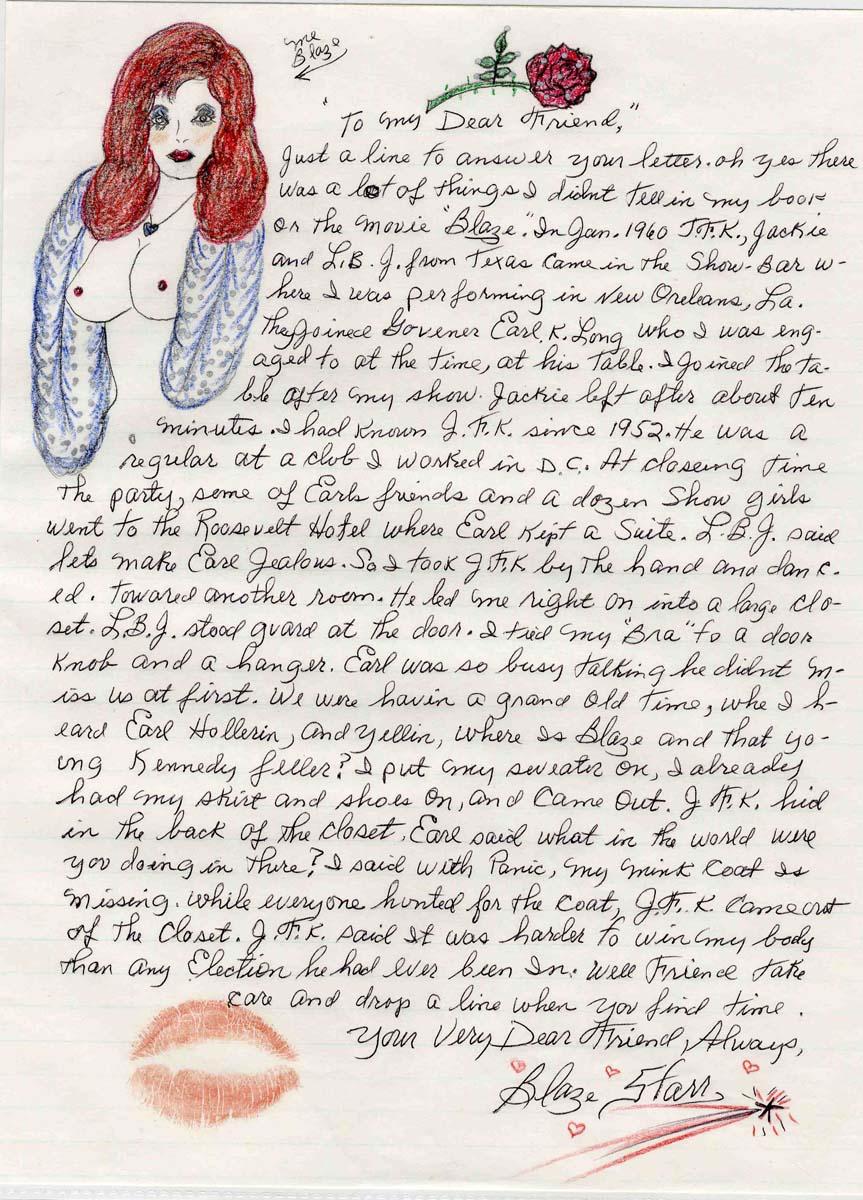 me
Blaze
"To my Dear Friend,"
Just a line to answer your letter. oh yes there
was a lot of things I didnt tell in my book
or the movie "Blaze". In Jan. 1960 J.F.K., Jackie
and L.B.J. from Texas came in the Show-Bar w-
here I was performing in New Orleans, La.
They joined Govener Earl K. Long who I was eng-
aged to at the time, at his table. I joined the ta-
ble after my show. Jackie left after about ten
minutes. I had known J.F.K. since 1952. He was a
regular at a club I worked in D.C. At closeing time
the party, some of Earls friends and a dozen Show girls
went to the Roosevelt Hotel where Earl kept a Suite. L.B.J. said
lets make Earl Jealous. So I took J.F.K by the hand and danc-
ed. toward another room. He led me right on into a large clo-
set. L.B.J. stood guard at the door. I tied my "Bra" to a door
knob and a hanger. Earl was so busy talking he didnt m-
iss us at first. We were havin a grand old time, whe I h-
eard Earl Hollerin, and yellin, where Is Blaze and that yo-
ung Kennedy feller? I put my sweater on, I already
had my skirt and shoes on, and came out. J.F.K. hid
in the back of the closet. Earl said what in the world were
you doing in there? I said with Panic, my mink coat Is
missing. While everyone hunted for the coat, J.F.K. came out
of the closet. J.F.K. said It was harder to win my body
than any Election he had ever been In. Well Friend take
care and drop a line when you find time.
Your Very Dear Friend, Always,
Blaze Starr